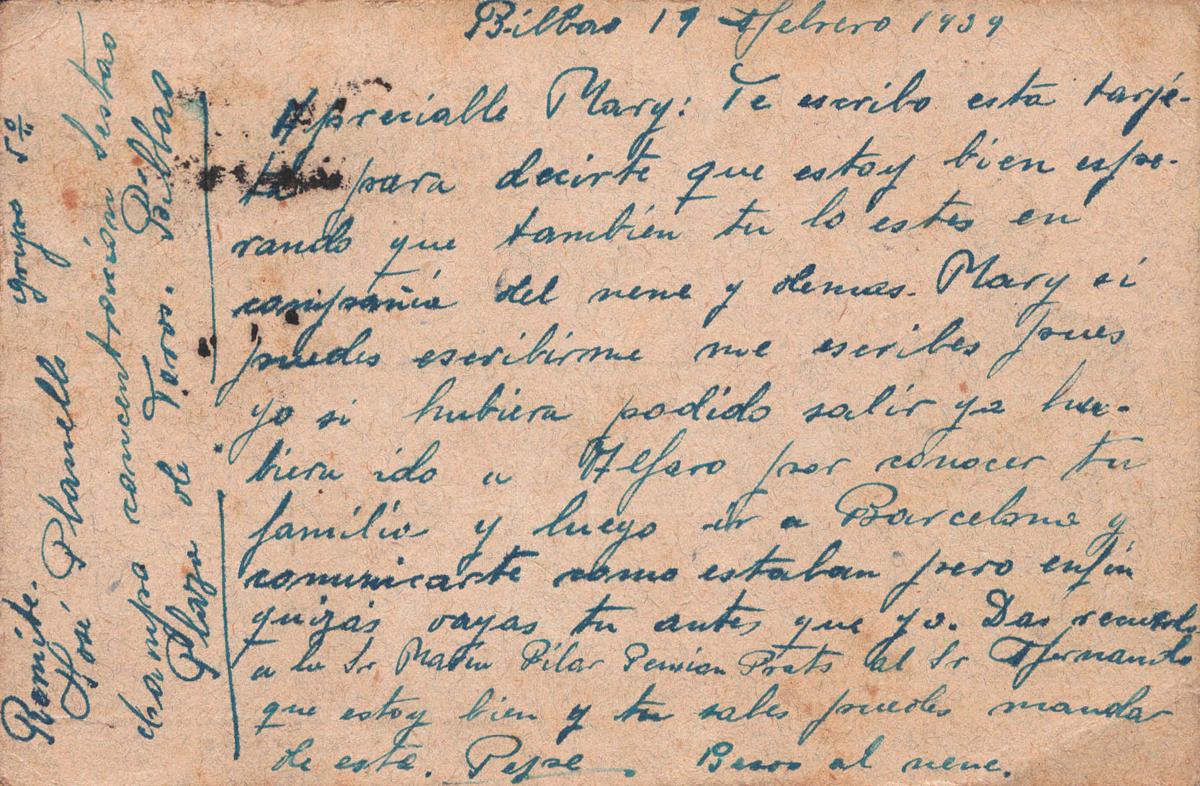 Bilbao 19 Febrero 1939
Apreciable Mary: Te escribo esta tarje-
ta para decirte que estoy bien espe-
rando que también tu lo estes en
compañia del nene y demas. Mary si
puedes escribirme me escribes pues
yo si hubiera podido salir ya hu-
biera ido a Alfaro por conocer tu
familia y luego ir a Barcelona y
comunicarte como estaban pero enfin
quizás vayas tu antes que yo. Das recuerdos
a la Sr Pilar Prats al Sr Fernando
que estoy bien y tu sabes puedes mandar
de este. Pepe. Besos al nene.
Remite. grupo 5º
José Planells
campo concentración Sestao
Plaza de Toros. Bilbao